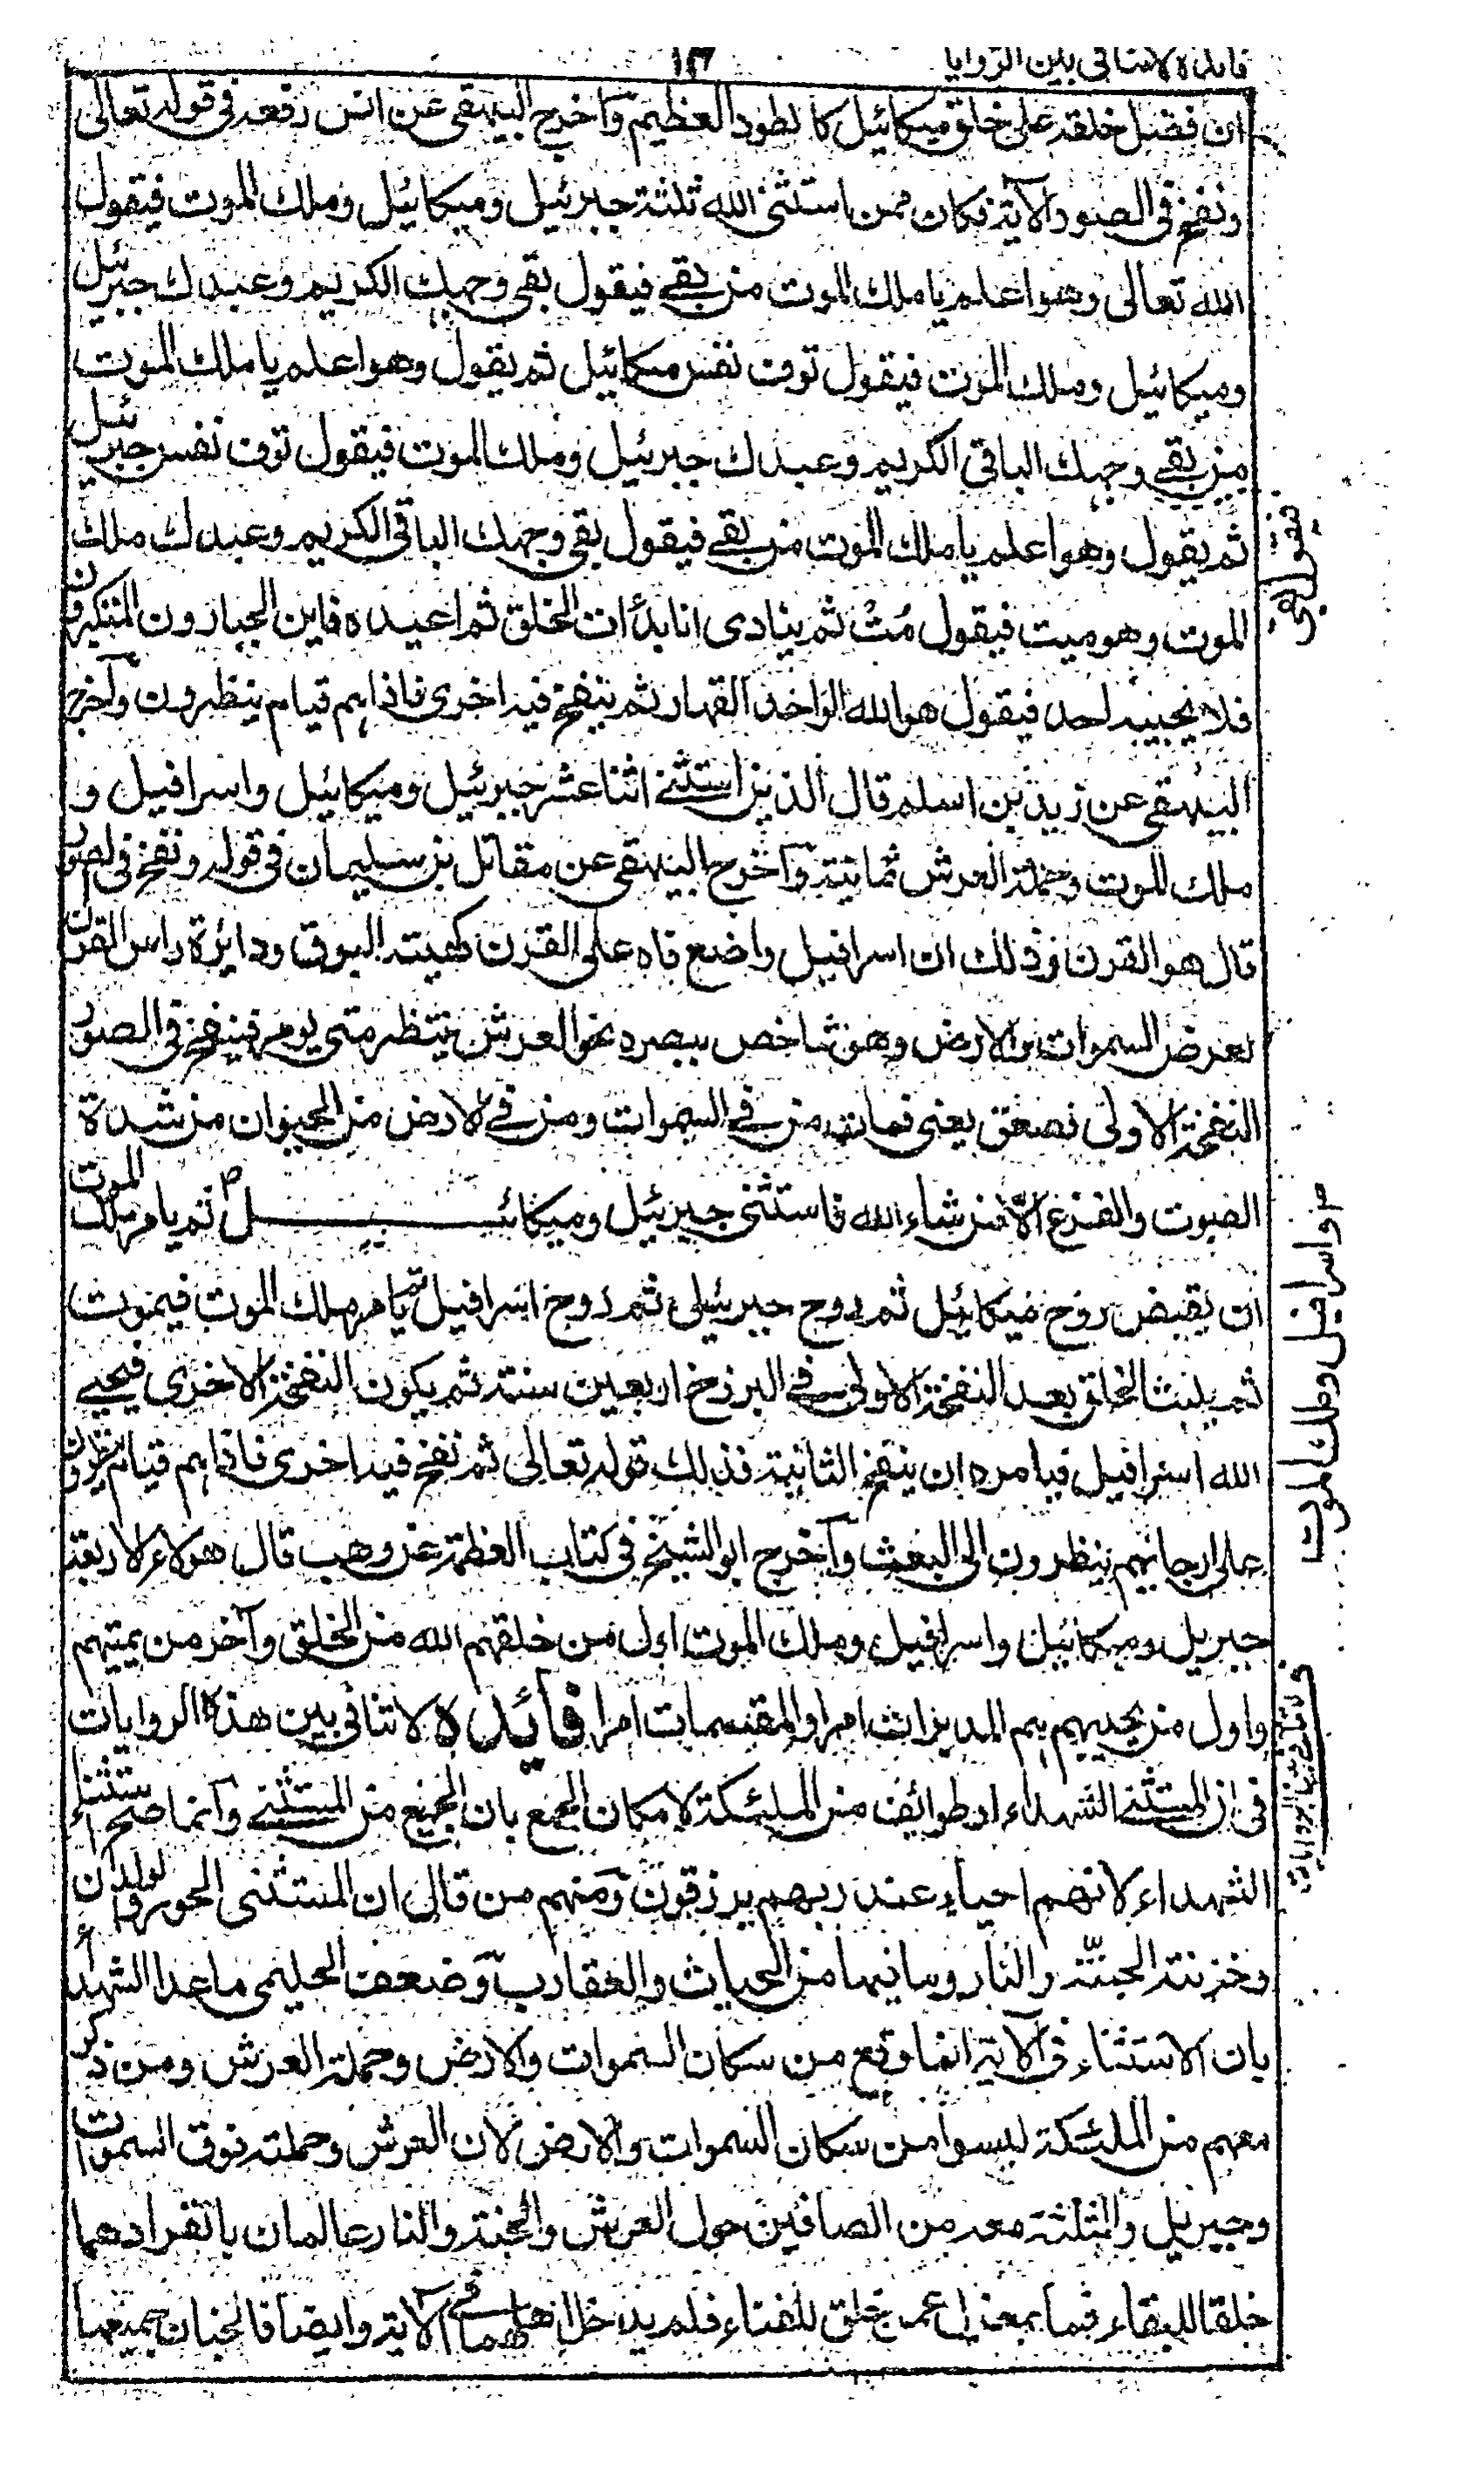 فائدة لا تنافي بين الروايا
١٣
ان فضل خلقه على خلق ميكائيل كالطود العظيم وأخرج البيهقى عن انس رفعه فى قوله تعالى
ونفخ فى الصور الآية فكان ممن استثنى الله ثلثة جبرئيل وميكائيل وملك الموت فيقول
الله تعالى وهو اعلم يا ملك الموت من بقى فيقول بقى وجهك الكريم وعبدك جبرئيل
وميكائيل وملك الموت فيقول توف نفس ميكائيل ثم يقول وهو اعلم يا ملك الموت
من بقى وجهك الباقى الكريم وعبدك جبرئيل وملك الموت فيقول توف نفس جبرئيل
فيقول بقى
ثم يقول وهو اعلم يا ملك الموت من بقى فيقول بقى وجهك الباقى الكريم وعبدك ملك
الموت وهو ميت فيقول مُتْ ثم ينادى انا بدأت الخلق ثم اعيده فاين الجبارون المتكبرون
فلا يجيبه احد فيقول هو الله الواحد القهار ثم ينفخ فيه اخرى فاذا هم قيام ينظرون وأخرج
البيهقى عن زيد بن اسلم قال الذين استثنى اثنا عشر جبرئيل وميكائيل واسرافيل و
ملك الموت وحملة العرش ثمانية وأخرج البيهقى عن مقاتل بن سليمان فى قوله ونفخ فى الصور
قال هو القرن وذلك ان اسرافيل واضع فاه على القرن كهيئة البوق ودائرة راس القرن
لعرض السموات والارض وهو شاخص ببصره نحو العرش ينتظر متى يومر فينفخ فى الصور
النفخة الاولى فصعق يعنى فمات من فى السموات ومن فى الارض من الحيوان من شدة
الصوت والفزع الّا من شاء الله فاستثنى جبرئيل وميكائيل ثم يامر ملك الموت
م واسرافيل وملك الموت
ان يقبض روح ميكائيل ثم روح جبرئيل ثم روح اسرافيل ثم يامر ملك الموت فيموت
ثم يلبث الخلق بعد النفخة الاولى فى البرزخ اربعين سنة ثم يكون النفخة الاخرى فيحيى
الله اسرافيل فيامره ان ينفخ الثانية فذلك قوله تعالى ثم نفخ فيه اخرى فاذا هم قيام ينظرون
على ارجلهم ينظرون الى البعث وأخرج ابو الشيخ فى كتاب العظمة عن وهب قال هولاء الاربعة
جبريل وميكائيل واسرافيل وملك الموت اول من خلقهم الله من الخلق وآخر من يميتهم
واول من يحييهم هم المدبرات امرا والمقسمات امرا فائدة لا تنافى بين هذه الروايات
فى ان المستثنى الشهداء او طوائف من الملئكة لامكان الجمع بان الجميع من المستثنى وانما صح استثناء
الشهداء لانهم احياء عند ربهم يرزقون ومنهم من قال ان المستثنى الحور والولدان
وخزنة الجنّة والنار وما فيها من الحيات والعقارب وضعف الحليمى ما عدا الشهداء
بان الاستثناء فى الآية انما وقع من سكان السموات والارض وحملة العرش ومن ذكر
معهم من الملئكة ليسوا من سكان السموات والارض لان العرش وحملته فوق السموات
وجبريل والثلثة معه من الصافين حول العرش والجنة والنار عالمان بانفرادهما
خلقا للبقاء فهما بمعزل عمن خلق للفناء فلم يدخل اهلهما فى الآية وايضا فالجنان جميعها